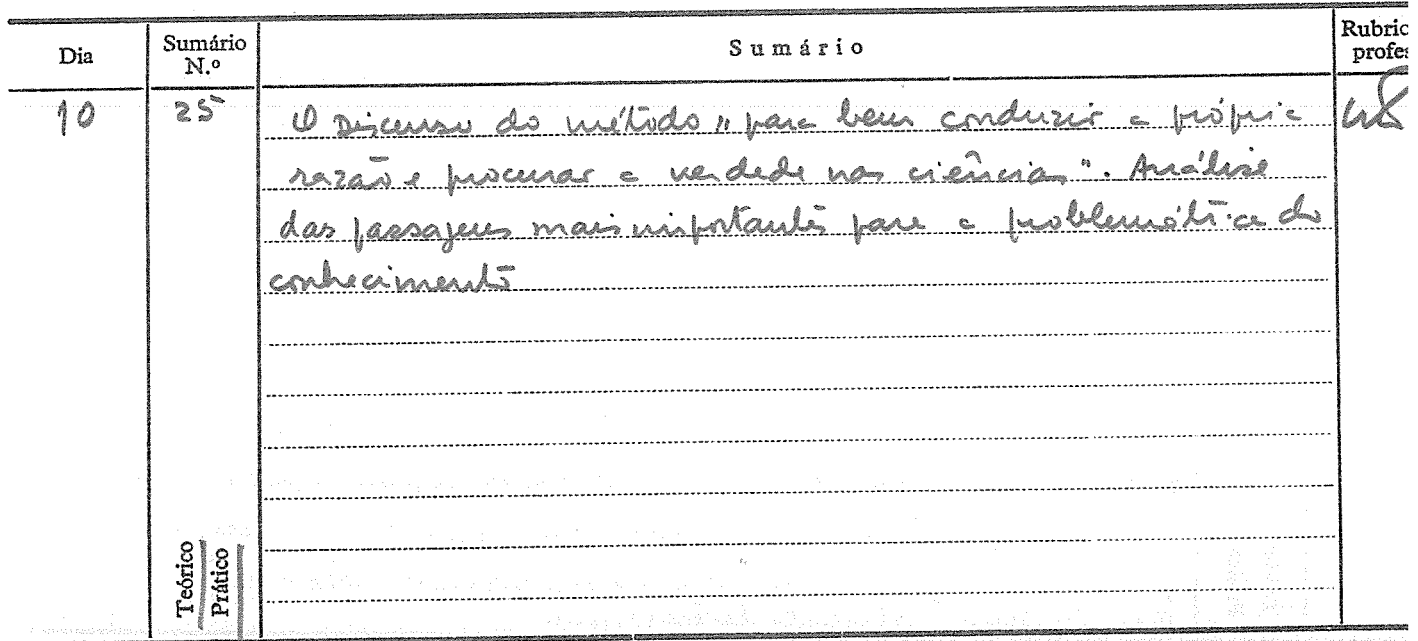 Dia Sumário N.º Sumário Rubric profes
10 25 O Discurso do método "para bem conduzir a própria
razão e procurar a verdade nas ciências". Análise
das passagens mais importantes para a problemática do
conhecimento
Teórico
Prático